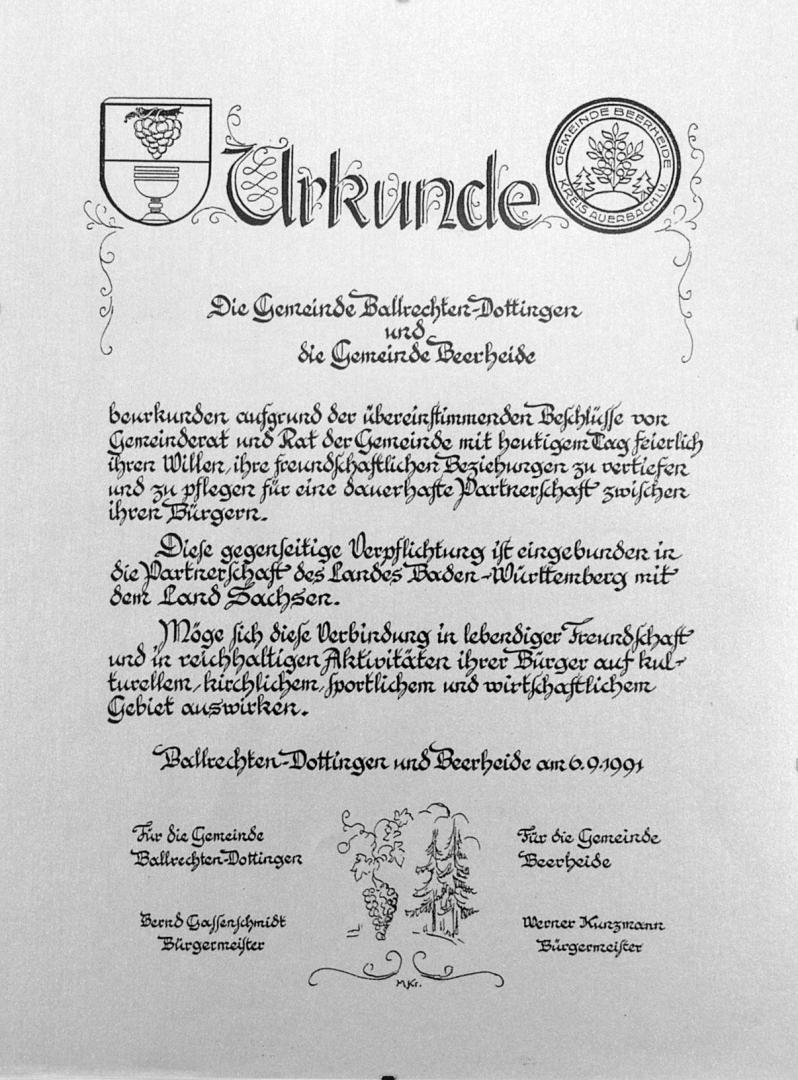 Urkunde
GEMEINDE BEERHEIDE
KREIS AUERBACH V.
Die Gemeinde Ballrechten-Dottingen
und
die Gemeinde Beerheide
beurkunden aufgrund der übereinstimmenden Beschlüsse von
Gemeinderat und Rat der Gemeinde mit heutigem Tag feierlich
ihren Willen, ihre freundschaftlichen Beziehungen zu vertiefen
und zu pflegen für eine dauerhafte Partnerschaft zwischen
ihren Bürgern.
Diese gegenseitige Verpflichtung ist eingebunden in
die Partnerschaft des Landes Baden-Württemberg mit
dem Land Sachsen.
Möge sich diese Verbindung in lebendiger Freundschaft
und in reichhaltigen Aktivitäten ihrer Bürger auf kul-
turellem, kirchlichem, sportlichem und wirtschaftlichem
Gebiet auswirken.
Ballrechten-Dottingen und Beerheide am 6.9.1991
Für die Gemeinde
Ballrechten-Dottingen
Bernd Gassenschmidt
Bürgermeister
Für die Gemeinde
Beerheide
Werner Kunzmann
Bürgermeister
M.Kr.